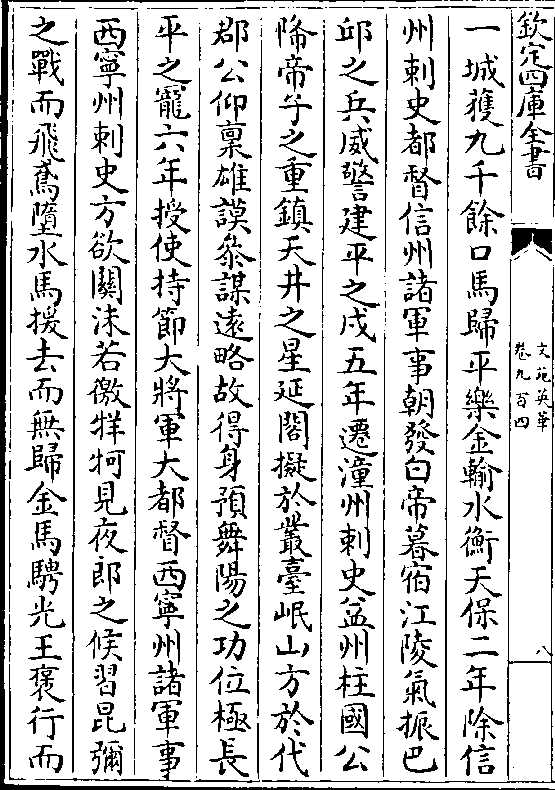 欽定四庫全書
文苑英華
卷九百四
八
一城獲九千餘口馬歸平樂金輸水衡天保二年除信
州刺史都督信州諸軍事朝發白帝暮宿江陵氣振巴
邱之兵威警建平之戍五年遷潼州刺史益州柱國公
降帝子之重鎮天井之星延閣擬於叢臺岷山方於代
郡公仰稟雄謨叅謀遠略故得身預舞陽之功位極長
平之寵六年授使持節大將軍大都督西寧州諸軍事
西寧州刺史方欲關沬若徼牂牁見夜郎之候習昆彌
之戰而飛鳶墮水馬援去而無歸金馬騁光王褒行而